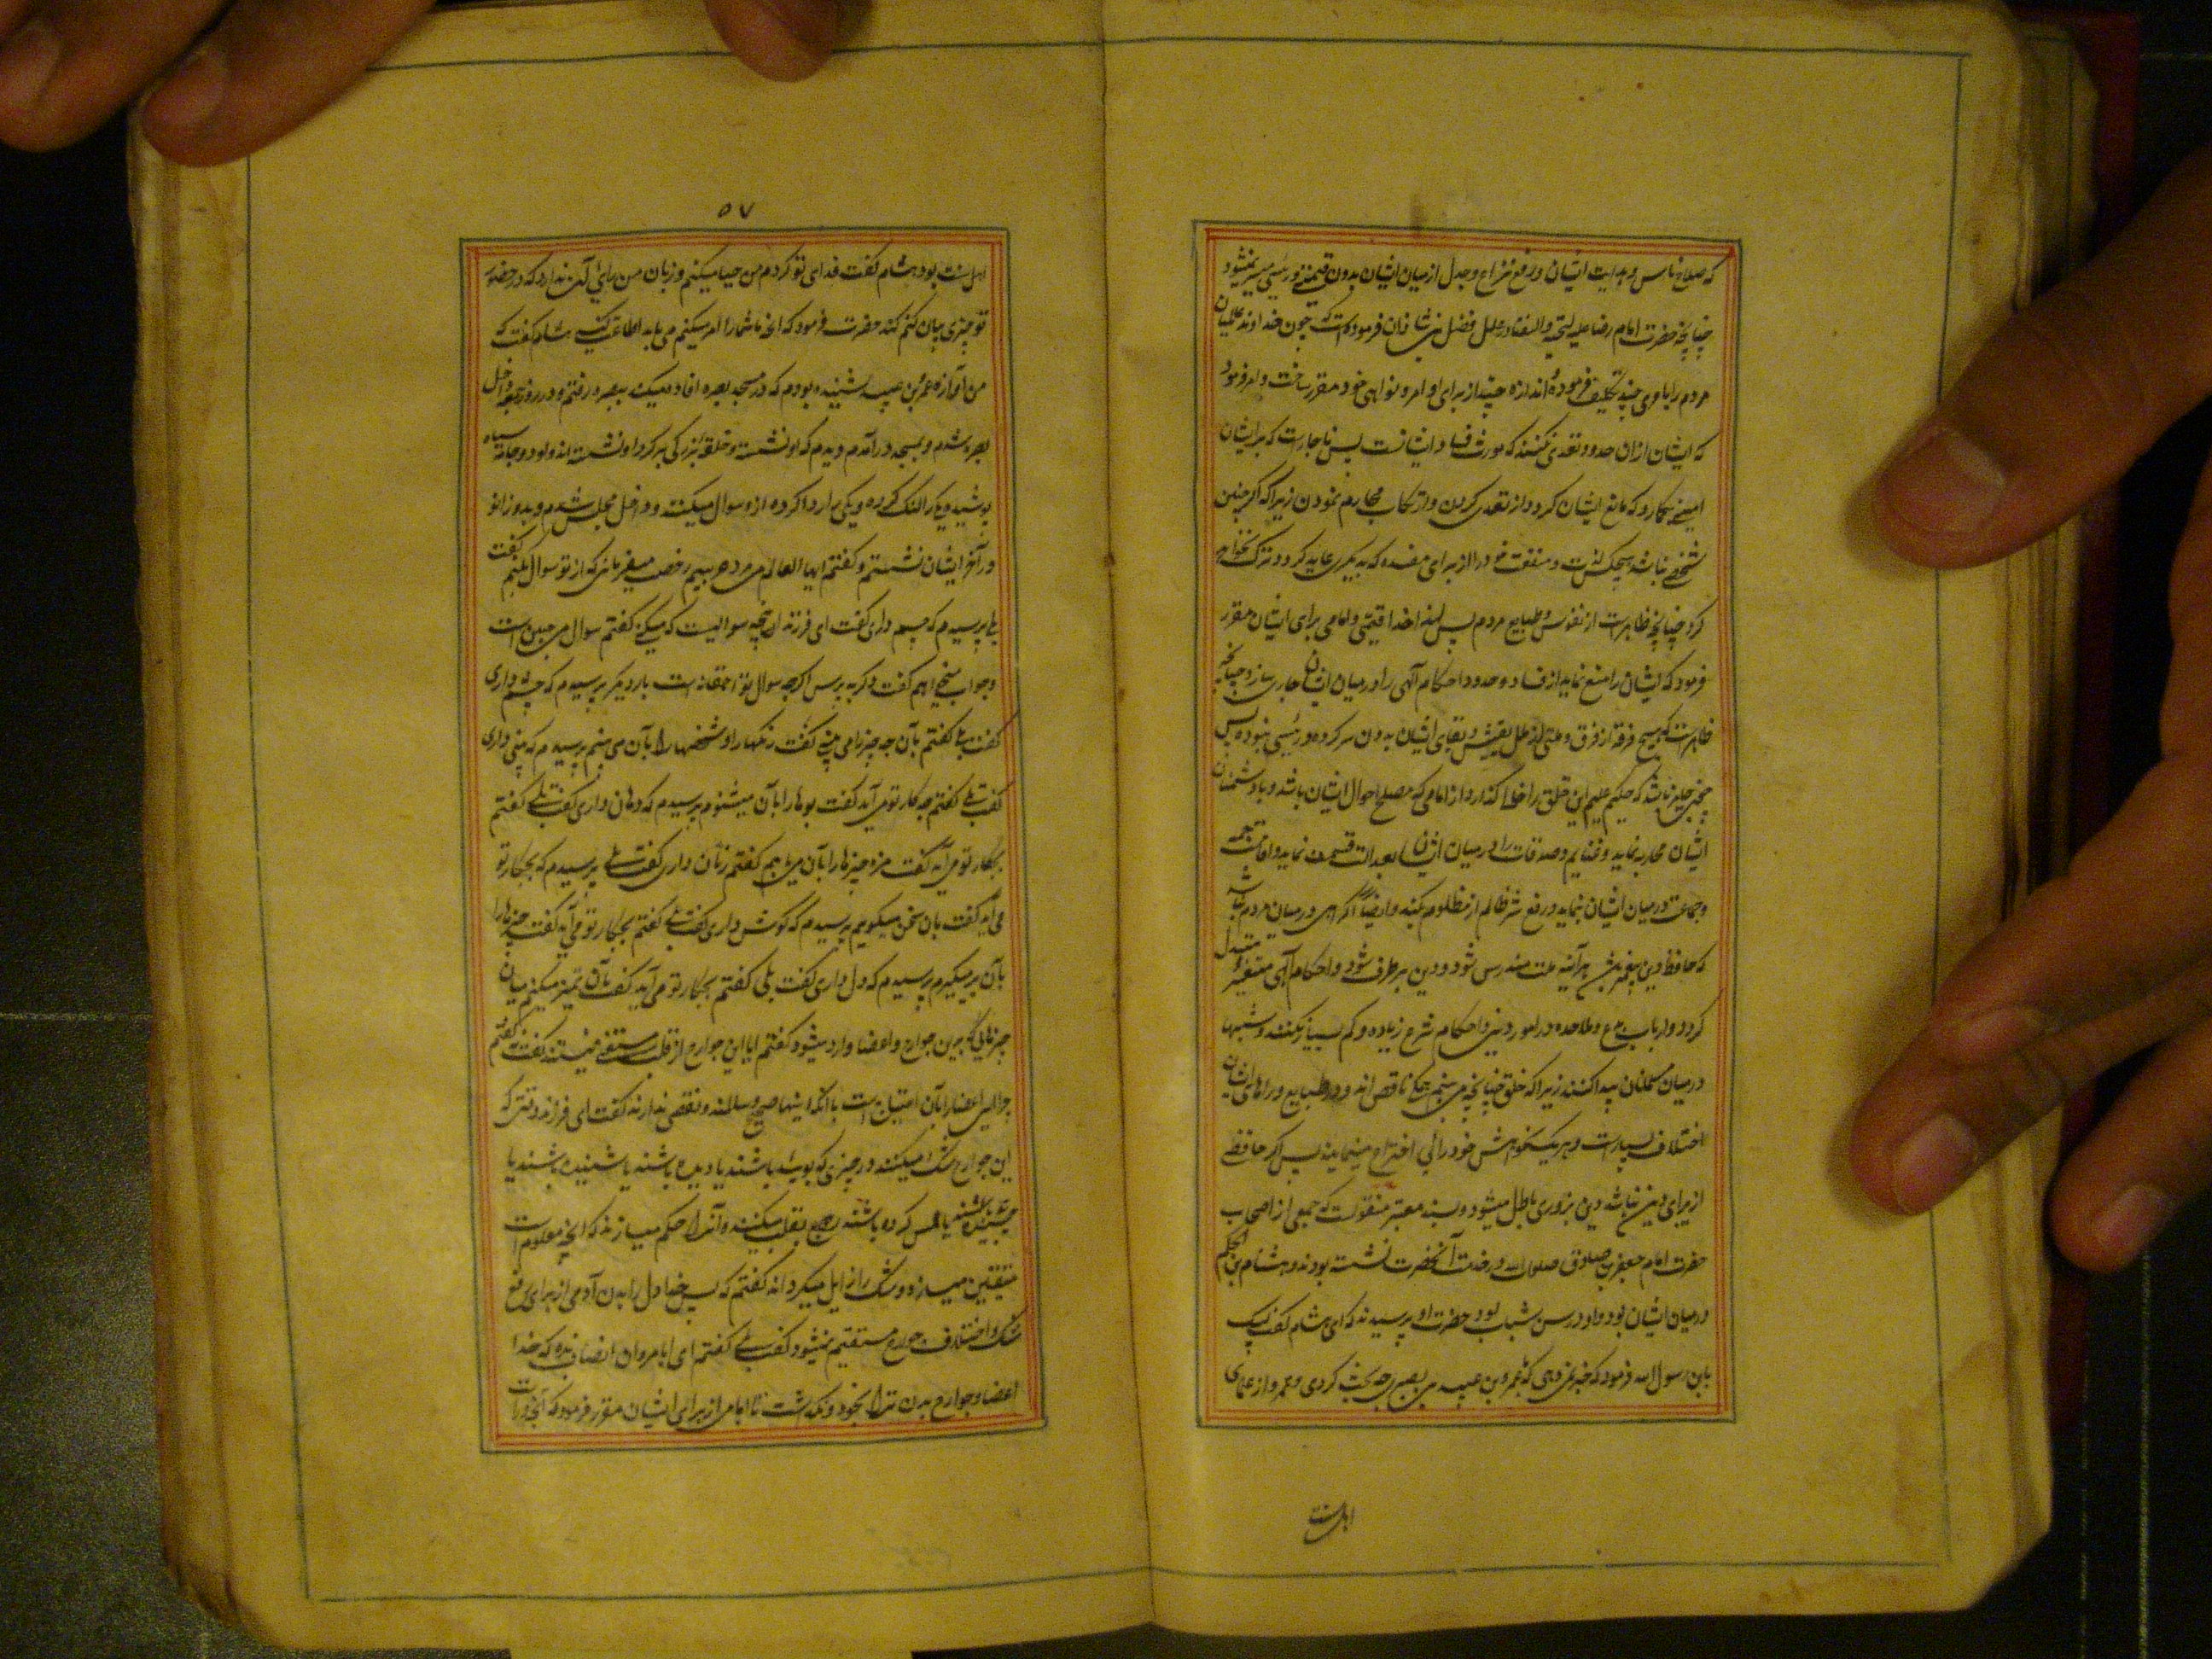 که صلاح ناس و هدایت ایشان و رفع نزاع و جدل از میان ایشان بدون قیمی و رئیسی میسر نمیشود
چنانچه حضرت امام رضا علیه التحیه والثنا در علل فضل بن شاذان فرموده است که چون خداوند عالمیان
مردم را با وی چند تکلیف فرموده اندازه چند از برای اوامر و نواهی خود مقرر ساخت و امر فرمود
که ایشان از ان حدود تعدی نکنند که مورث فساد ایشانست پس ناچارست که بر ایشان
امینی بکمارد که مانع ایشان کردد از تعدی کردن و ارتکاب محارم نمودن زیرا که اکر چنین
شخصی نباشد هیچکس لذت و منفعت خود را از برای مفسده که بدیکری عاید کردد ترک نخواهد
کرد چنانچه ظاهرست از نفوس و طبایع مردم پس لهذا خدا قیمی و امامی برای ایشان مقرر
فرمود که ایشان را منع نماید از فساد و حدود و احکام آلهی را در میان ایشان جاری سازد چنانچه
ظاهرست که هیچ فرقه از فرق و ملتی از ملل تعیش و بقای ایشان بدون سرکرده و رئیسی نبوده پس
چون جایز باشد که حکیم علیم این خلق را خالی گذارد از امامی که مصلح احوال ایشان باشد و با دشمنان
ایشان محاربه نماید و غنایم و صدقات را در میان ایشان بعدالت قسمت نماید و اقامت جمعه
و جماعت در میان ایشان بنماید و رفع شر ظالم از مظلوم بکند و ایضا اگر امامی در میان مردم نباشد
که حافظ دین پیغمبر باشد هر آینه ملت مندرس شود و دین برطرف شود و احکام آلهی متغیر و متبدل
کردد و ارباب بدع و ملاحده در امور دین و احکام شرع زیاده و کم بسیار بکنند و شبهها
در میان مسلمانان پیدا کنند زیرا که خلق چنانچه می بینیم همکی ناقص اند و در طبایع و راهای ایشان
اختلاف بسیارست و هر یک بخواهش خود رائی اختراع مینمایند پس اکر حافظی
از برای دین نباشد دین بزودی باطل میشود و بسند معتبر منقولست که جمعی از اصحاب
حضرت امام جعفر صادق صلوات الله در خدمت آنحضرت نشسته بودند و هشام بن الحکم
در میان ایشان بود و او در سن شباب بود حضرت از او پرسیدند که ای هشام گفت لبیک
یابن رسول الله فرمود که خبر نمی دهی که با عمرو بن عبید بصری چه بحث کردی و عمرو از علمای
اهل سنت
۵۷
اهل سنت بود هشام گفت فدای تو کردم من حیا میکنم و زبان من یارای آن ندارد که در حضور
تو چیزی بیان کند حضرت فرمود که انچه ما شما را امر میکنیم می باید اطاعت کنید هشام گفت که
من آوازه عمرو بن عبید شنیده بودم که در مسجد بصره افاده میکند ببصره رفتم و در روز جمعه داخل
بصره شدم و بمسجد در آمدم دیدم که او نشسته و خلق بزرکی بر کرد او نشسته اند و او دو جامه سیاه
پوشیده یکی را لنک کرده و یکی را ردا کرده از او سوال میکنند و داخل مجلس شدم و بدو زانو
در آخر ایشان نشستم و گفتم ایها العالم من مرد غریبم رخصت میفرمائی که از تو سوال بکنم گفت
بلی پرسیدم که چشم داری گفت ای فرزند این چه سوالیست که میکنی گفتم سوال من چنین است
و جواب میخواهم گفت دکر بپرس اکرچه سوال تو احمقانه است بار دیکر پرسیدم که چشم داری
گفت بلی گفتم بآن چه چیز را می بینی گفت رنکها را و شخصها را بآن می بینم پرسیدم که بینی داری
گفت بلی گفتم چه کار تو می آید گفت بوها را بآن میشنوم پرسیدم که دهان داری گفت بلی گفتم
بچکار تو می آید گفت مزه چیزها را بآن می یابم گفتم زبان داری گفت بلی پرسیدم که بچکار تو
می آید گفت بان سخن میکویم پرسیدم که گوش داری گفت بلی گفتم بچکار تو می آید گفت چیزها را
بآن بر میکیرم پرسیدم که دل داری گفت بلی گفتم بچکار تو می آید گفت بآن تمیز میکنم میان
چیزهائی که برین جوارح و اعضا وارد میشود گفتم ایا این جوارح از قلب مستغنی نیستند گفت نه گفتم
چرا این اعضا را بآن احتیاج است با آنکه اینها صحیح و سالمند و نقصی ندارند گفت ای فرزند وقتی که
این جوارح شک میکنند در چیزی که بوئیده باشند یا دیده باشند یا شنیده باشند یا
چشیده باشند یا لمس کرده باشند رجوع بقلب میکنند و آنرا حکم میسازند که انچه معلوم است
متیقن میسازد و شک را زایل میکرداند گفتم که پس خدا دل را بدن آدمی از برای رفع
شک و اختلاف جوارح مستقیم نمیشود گفت بلی گفتم ای ابا مروان انصاف بده که خدا
اعضا و جوارح بدن ترا بخود نکذاشت تا امامی از برای ایشان مقرر فرمود که آنچه را